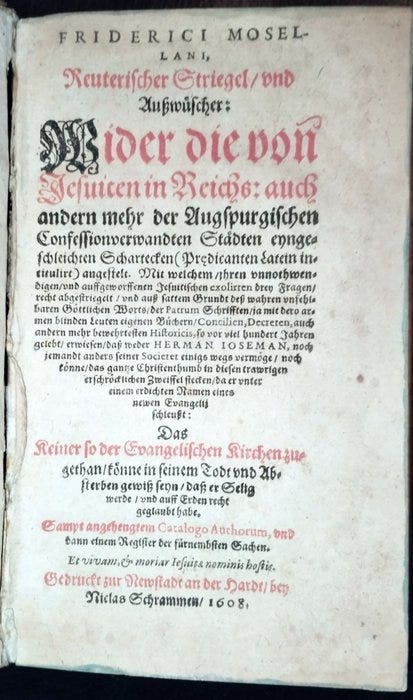 FRIDERICI MOSEL-
LANI,
Reuterischer Striegel/ vnd
Außwüscher:
Wider die von
Jesuiten in Reichs: auch
andern mehr der Augspurgischen
Confessionverwandten Städten eynge-
schleichten Schartecken (Prędicanten Latein in-
titulirt) angestelt. Mit welchem/ jhren vnnothwen-
digen/ vnd auffgeworffenen Jesuitischen exolirten drey Fragen/
recht abgestriegelt/ vnd auß sattem Grundt deß wahren vnfehl-
baren Göttlichen Worts/ der Patrum Schrifften/ ja mit dero ar-
men blinden Leuten eigenen Büchern/ Concilien, Decreten, auch
andern mehr bewehrtesten Historicis, so vor viel hundert Jahren
gelebt/ erwiesen/ daß weder HERMAN IOSEMAN, noch
jemandt anders seiner Societet einigs wegs vermöge/ noch
könne/ das gantze Christenthumb in diesen trawrigen
erschröcklichen Zweiffel stecken/ da er vnter
einem erdichten Namen eines
newen Evangelij
schleußt:
Das
Keiner so der Evangelischen Kirchen zu-
gethan/ könne in seinem Todt vnd Ab-
sterben gewiß seyn/ daß er Selig
werde/ vnd auff Erden recht
geglaubt habe.
Sampt angehengtem Catalogo Authorum, vnd
dann einem Register der fürnembsten Sachen.
Et vivam, & moriar Iesuitæ nominis hostis.
Gedruckt zur Newstadt an der Hardt/ bey
Niclas Schrammen/ 1608.